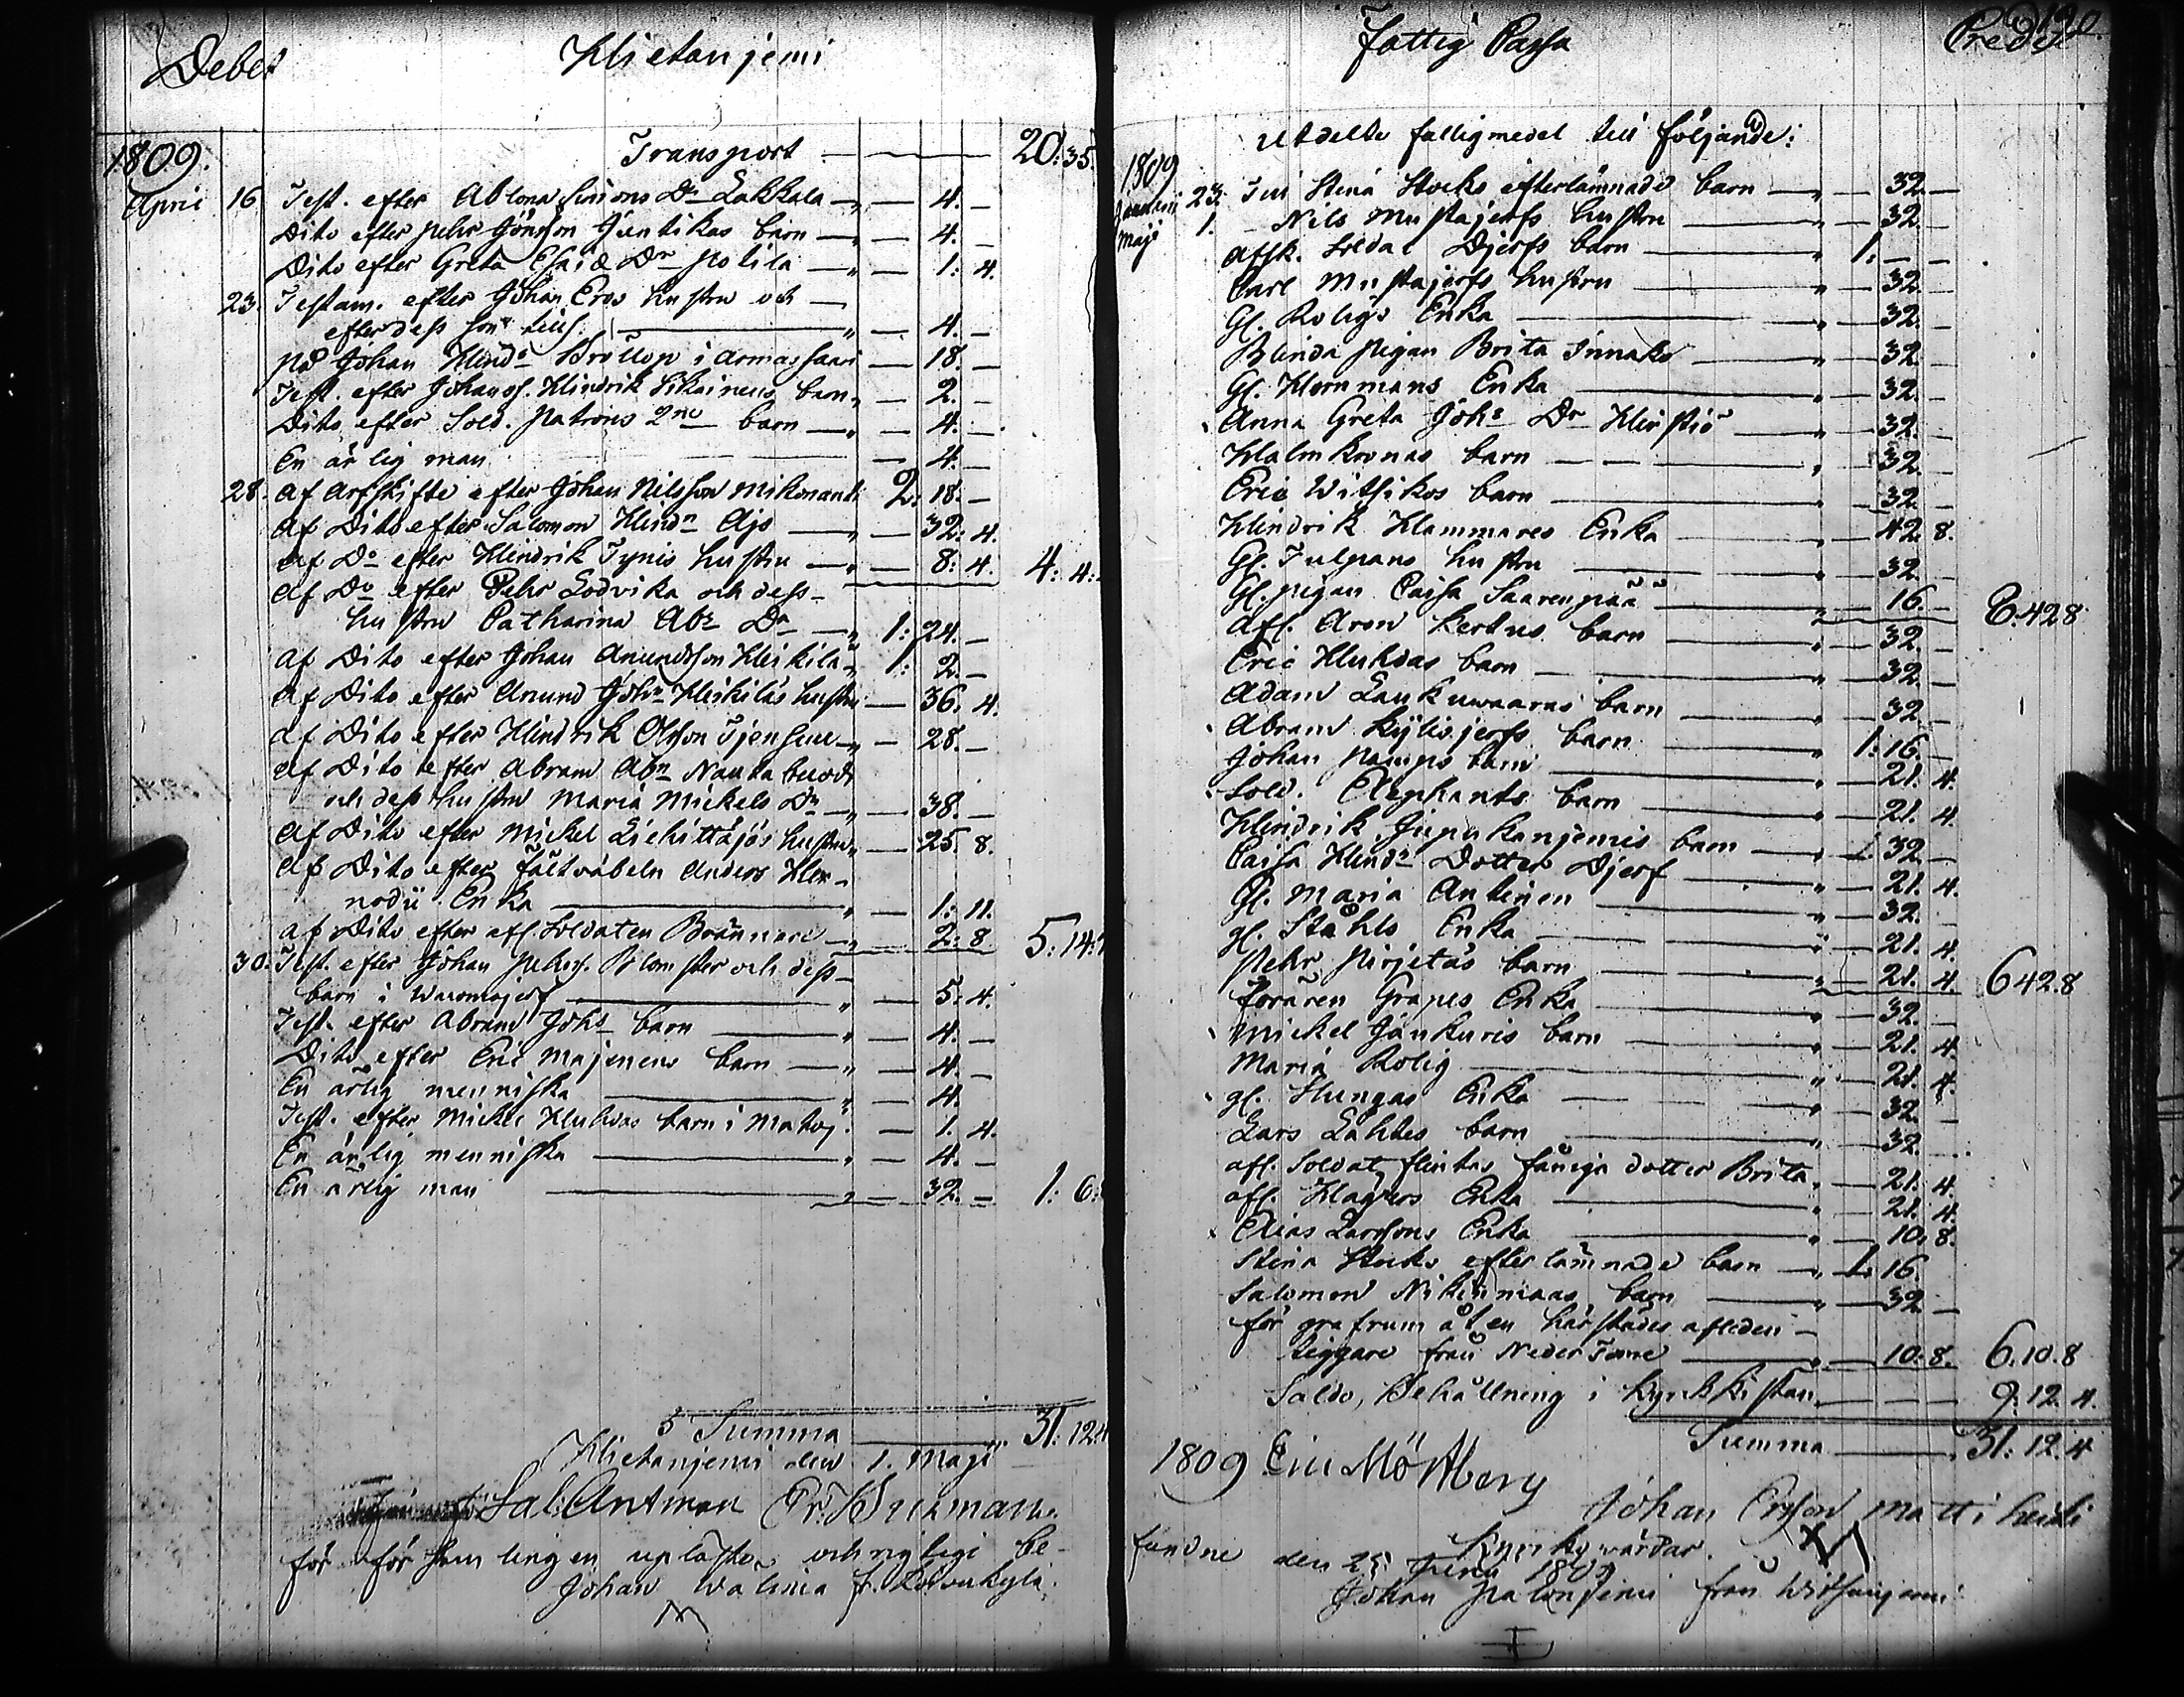 Debet Hietaniemi
1809. Transport 20:35.
April 16 Test. efter Ablona Simons Dr Lakkala 4. —
Dito efter Pehr Jönsson Juntikas barn 4. —
Dito efter Greta Esaiæ Dr Potila 1: 4.
23. Testam. efter Johan Ers hustru och
efter dess son 4. —
på Johan Hindr Bröllop i Armassaari 18. —
Test. efter Johans. Hindrik barn 2. —
Dito efter Sold. Patrons 2ne barn 4. —
En ärlig man 4. —
28. Af Arfskifte efter Johan Nilsson 2. 18. —
Af Dito efter Salomon Hindn Ajo 32: 4.
Af Do efter Hindrik Tynis hustru 8: 4. 4: 4:
Af Do efter Pehr Lodvika och dess
hustru Catharina Abr Dr 1: 24. —
Af Dito efter Johan Anundsson Heikilä 1: 2. —
Af Dito efter Anund John Heikiläs hustru 36. 4.
Af Dito efter Hindrik Olsson 28. —
Af Dito efter Abram Abrn
och dess hustru Maria Mickels Dr 38. —
Af Dito efter Mickel Liehittäjäs hustru 25. 8.
Af Dito efter Fältväbeln Anders
Enka 1: 11.
Af Dito efter afl. Soldaten Brännare 2: 8. 5: 14:
30. Test. efter Johan Pehrs. Blomster och dess
barn i 5: 4.
Test. efter Abram Johs barn 4. —
Dito efter Eric Majenens barn 4. —
En ärlig menniska 4.
Test. efter Mickel Huhvas barn i 1. 4.
En ärlig menniska 4. —
En ärlig man 32. — 1: 6:
Summa 31: 12:4
Hietaniemi den 1. Maji
Sal: Antman
för församlingen uplästa och rigtigt be-
Johan från
Fattig Cassa Credit
Utdelte fattigmedel till följande:
1809
23. Till Stina Stocks efterlämnade barn 32. —
Maji 1. Nils Mustajerfs hustru 32. —
Afsk. Soldat Djerfs barn 1: — —
Carl Mustajerfs hustru 32. —
Gl. Roligs Enka 32. —
Blinda pigan Brita 32. —
Gl. Hornmans Enka 32. —
Anna Greta Johs Dr 32. —
barn 32.
Eric barn 32. —
Hindrik Hammares Enka 42. 8.
Gl. Tulpans hustru 32. —
Gl. pigan Caisa Saarenpää 16. — 8.42.8
Afl. Aron Kertus barn 32. —
Eric Huhvas barn 32. —
Adam barn 32. —
Abram barn 1: 16. —
Johan barn 21. 4.
Sold. Elephants barn 21. 4.
Hindrik barn 1. 32. —
Caisa Hindr Dotter Djerf 21. 4.
Gl. Maria Antinen 32. —
gl. Ståhls Enka 21. 4.
Pehr barn 21. 4. 6.42.8
Föraren Grapes Enka 32. —
Mickel barn 21. 4.
Maria Rolig 21. 4.
gl. Enka 32 —
Lars Lahtes barn 32. —
afl. Soldat Flintas dotter Brita 21. 4.
afl. Enka 21. 4.
Elias Larssons Enka 10. 8.
Stina Stocks efterlämnade barn 1. 16.
Salomon barn 32 —
för grafrum åt en härstädes afleden
tiggare från Neder Torne 10. 8. 6.10.8
Saldo, Behållning i Kyrkkistan 9. 12. 4.
Summa 31: 12. 4
1809 Eric Mörtberg
Johan Ersson Matti
Kyrkovärdar.
fundne den 25 Junii 1809
Johan från